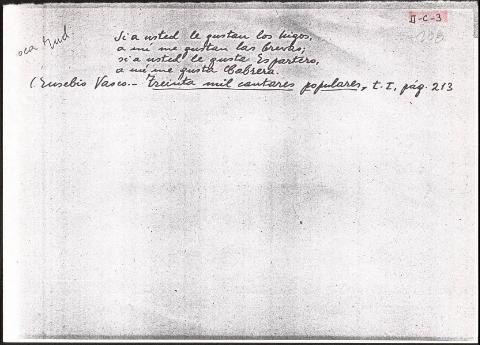 II-C-3
208
Si a usted le gustan los higos,
a mí me gustan las brevas;
si a usted le gusta Espartero,
a mí me gusta Cabrera.
(Eusebio Vasco.- Treinta mil cantares populares, t. I, pág. 213